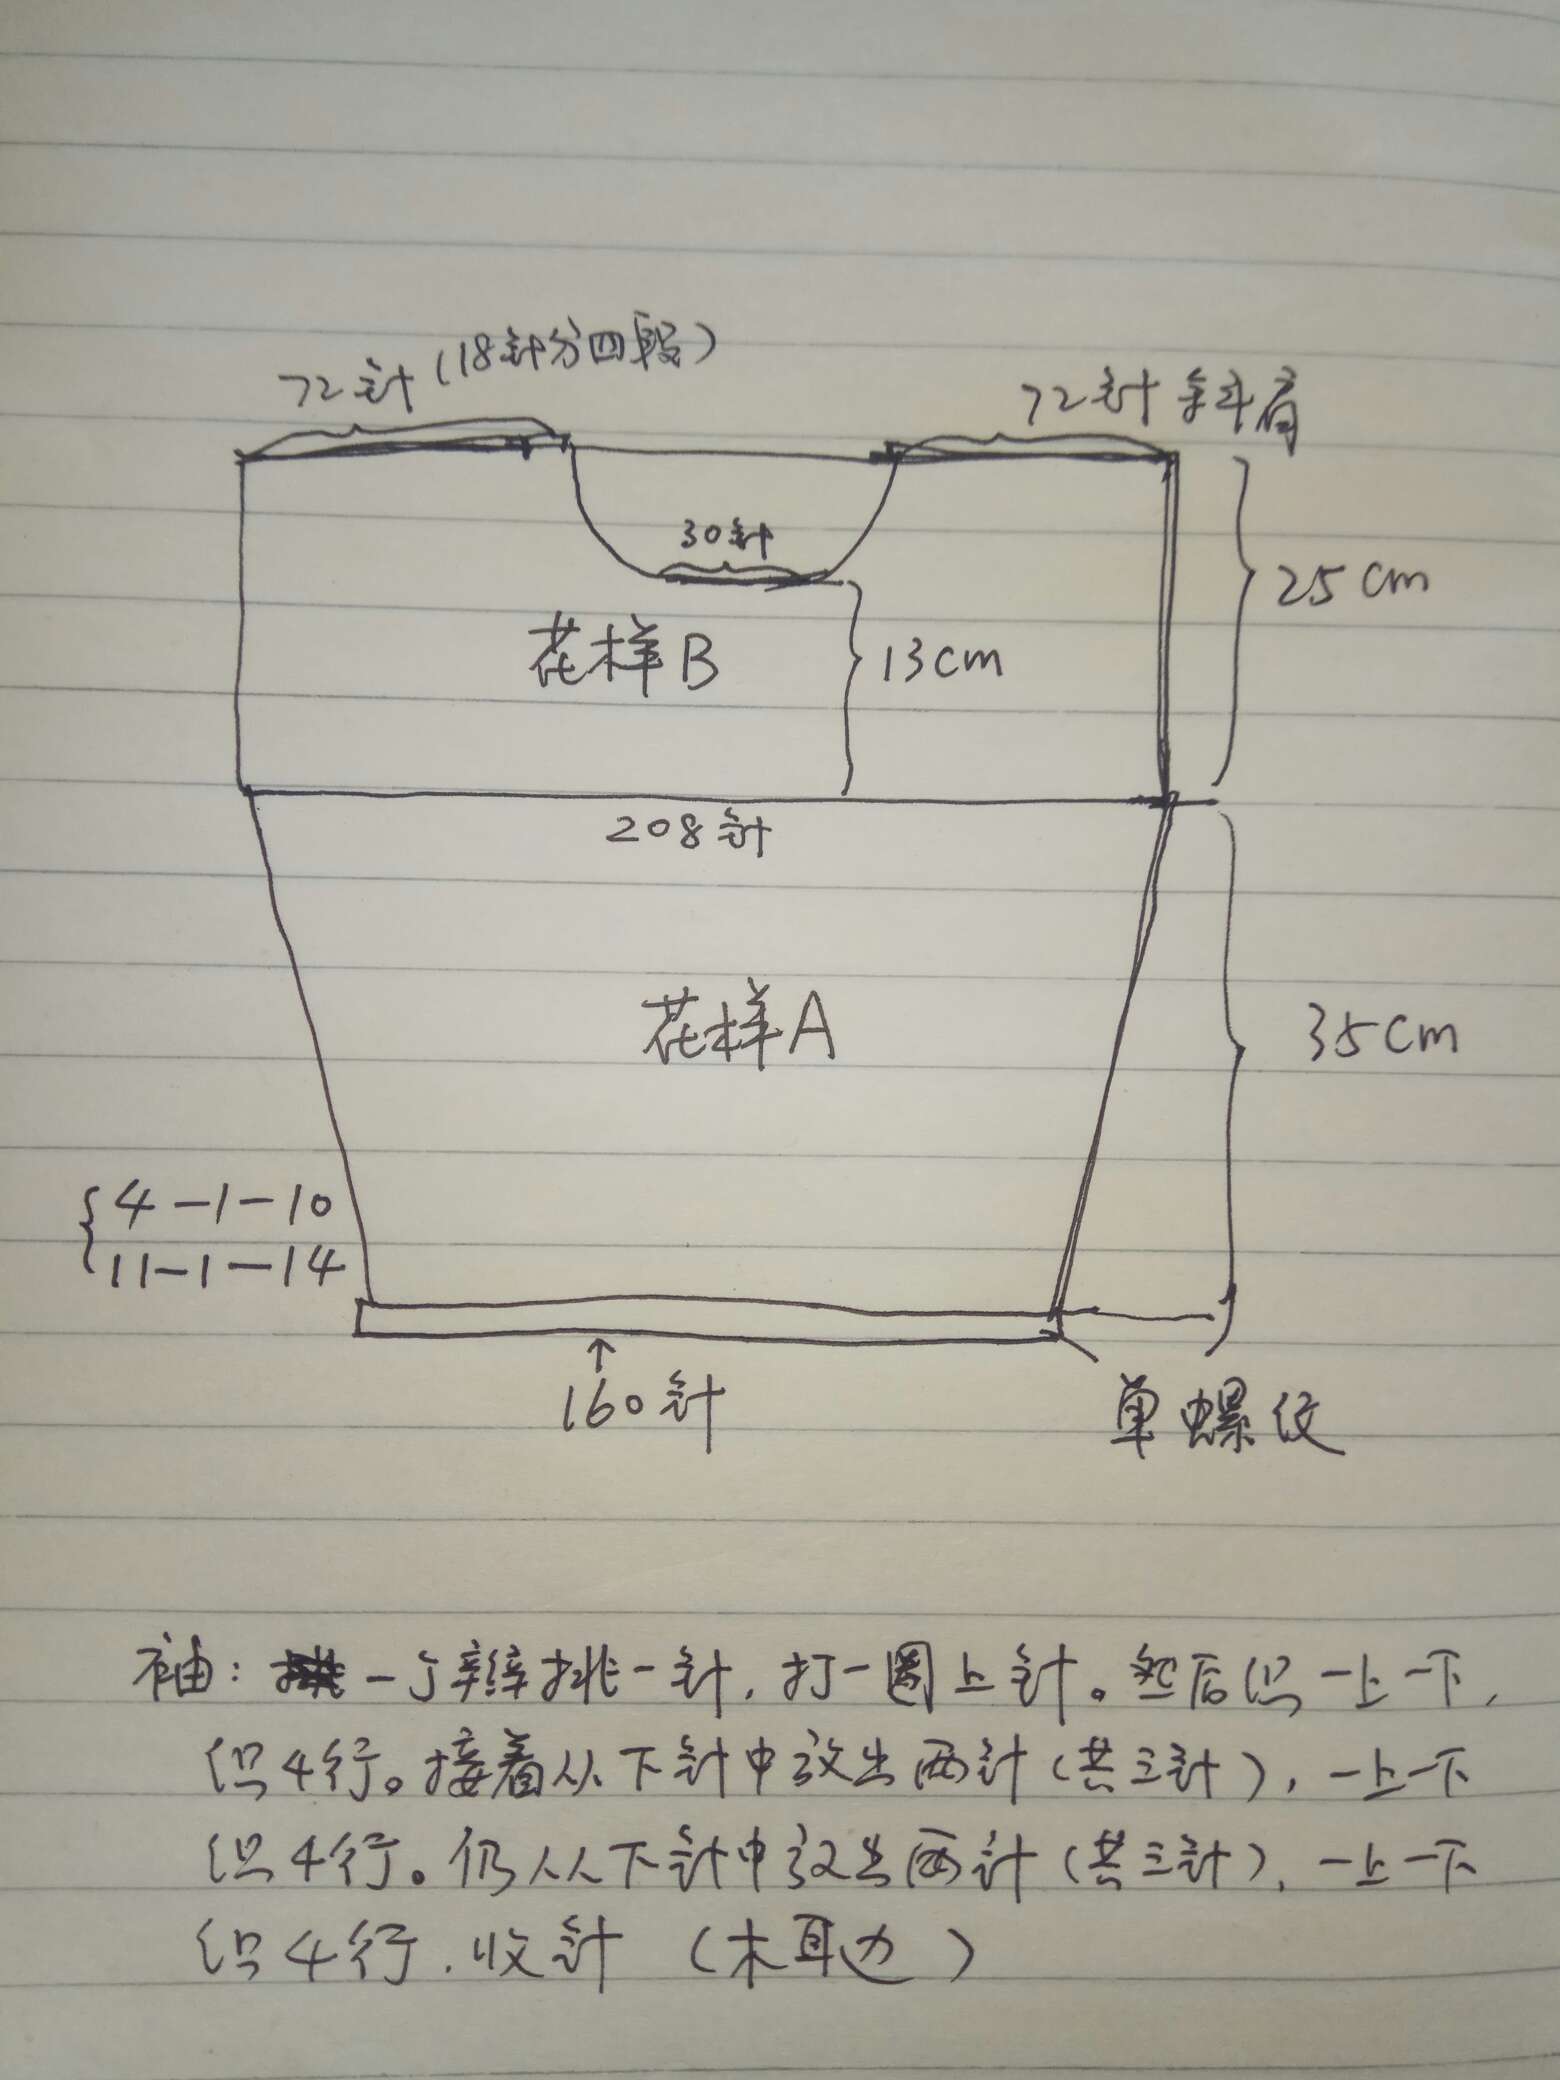 72针(18针分四段)
72针 斜肩
30针
25cm
花样B
13cm
208针
花样A
35cm
4-1-10
11-1-14
160针
单螺纹
袖: 一个辫挑一针,打一圈上针。然后织一上一下,
织4行。接着从下针中放出两针(共三针),一上一下
织4行。仍从下针中放出两针(共三针),一上一下
织4行.收针 (木耳边)